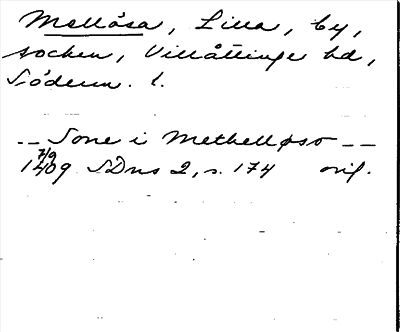 Mellösa, Lilla, by,
socken, Villåttinge hd,
Söderm. l.
-- Tone i Methelløso --
7/9
1409 SDns 2, s. 174 orig.